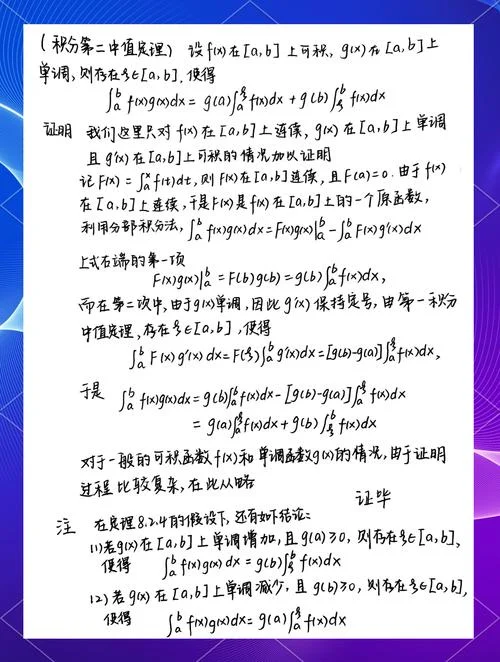 (积分第二中值定理) 设f(x)在[a,b]上可积, g(x)在[a,b]上
单调, 则存在ξ∈[a,b], 使得
∫_a^b f(x)g(x)dx = g(a)∫_a^ξ f(x)dx + g(b)∫_ξ^b f(x)dx
证明 我们这里只对f(x)在[a,b]上连续, g(x)在[a,b]上单调
且g'(x)在[a,b]上可积的情况加以证明
记F(x)=∫_a^x f(t)dt, 则F(x)在[a,b]连续, 且F(a)=0. 由于f(x)
在[a,b]上连续, 于是F(x)是f(x)在[a,b]上的一个原函数,
利用分部积分法, ∫_a^b f(x)g(x)dx=F(x)g(x)|_a^b-∫_a^b F(x)g'(x)dx
上式右端的第一项
F(x)g(x)|_a^b=F(b)g(b)=g(b)∫_a^b f(x)dx,
而在第二次中, 由于g(x)单调, 因此g'(x)保持定号, 由第一积分
中值定理, 存在ξ∈[a,b], 使得
∫_a^b F(x)g'(x)dx=F(ξ)∫_a^b g'(x)dx=[g(b)-g(a)]∫_a^ξ f(x)dx,
于是 ∫_a^b f(x)g(x)dx=g(b)∫_a^b f(x)dx-[g(b)-g(a)]∫_a^ξ f(x)dx
= g(a)∫_a^ξ f(x)dx+g(b)∫_ξ^b f(x)dx
对于一般的可积函数f(x)和单调函数g(x)的情况, 由于证明
过程比较复杂, 在此从略
证毕
注 在定理8.2.4的假设下, 还有如下结论:
(1)若g(x)在[a,b]上单调增加, 且g(a)≥0, 则存在ξ∈[a,b],
使得 ∫_a^b f(x)g(x)dx=g(b)∫_ξ^b f(x)dx
(2)若g(x)在[a,b]上单调减少, 且g(b)≥0, 则存在ξ∈[a,b],
使得 ∫_a^b f(x)g(x)dx=g(a)∫_a^ξ f(x)dx